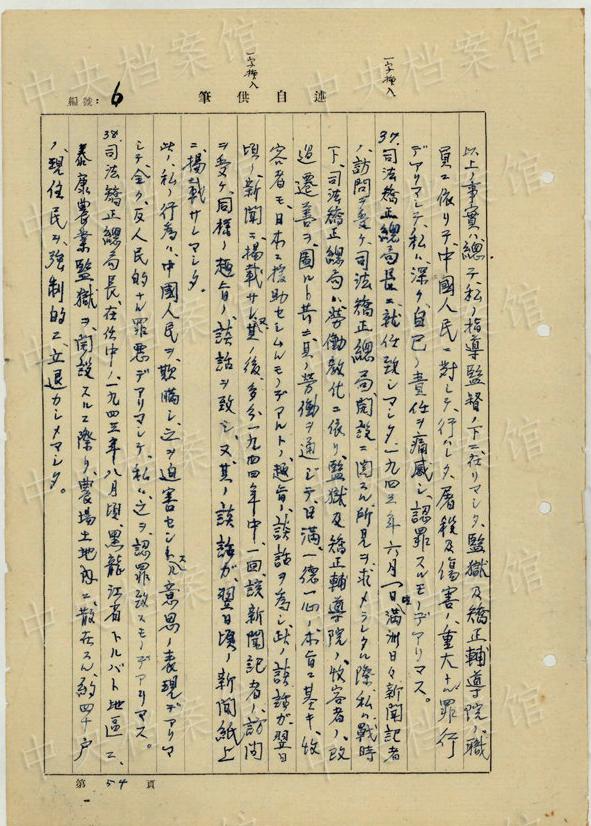 中央档案馆
一字挿入
一字挿入
編號：6
筆供自述
以上ノ事実ハ總テ私ノ指導監督ノ下ニ在リマシタ監獄及矯正輔導院ノ職
員ニ依リテ、中國人民ニ対シテ行ハレタ屠殺及傷害ノ重大ナル罪行
デアリマシテ、私ハ深ク自己ノ責任ヲ痛感シ、認罪スルモノデアリマス。
37.司法矯正總局長ニ就任致シマシタ一九四三年六月一日満洲日々新聞記者
ノ訪問ヲ受ケ、司法矯正總局開設ニ関スル所見ヲ求メラレタル際、私ハ戦時
下、司法矯正總局ハ労働教化ニ依リ監獄及矯正輔導院ノ收容者ノ改
過遷善ヲ図ルト共ニ其ノ労働ヲ通ジテ、日満一德一心ノ本旨ニ基キ、收
容者モ、日本ニ援助セシムルモノデアルトノ趣旨ノ談話ヲ為シ、此ノ談話ガ翌日
頃ノ新聞ニ掲載サレ、其ノ後、多分一九四四年中、一回該新聞記者ノ訪問
ヲ受ケ、同様ノ趣旨ノ談話ヲ致シ、又其ノ談話ガ、翌日頃ノ新聞紙上
ニ掲載サレマシタ。
此ノ私ノ行為ハ、中國人民ヲ欺瞞シ、之ヲ迫害セントスル意思ノ表現デアリマ
シテ、全ク、反人民的ナル罪悪デアリマシテ、私ハ之ヲ認罪致スモノデアリマス。
38.司法矯正總局長在任中、一九四三年八月頃黒龍江省トルバト地區ニ、
泰康農業監獄ヲ開設スルニ際リ、農場土地内ニ散在スル約四十戸
ノ現住民ヲ強制的ニ立退カシメマシタ。
第 54 頁